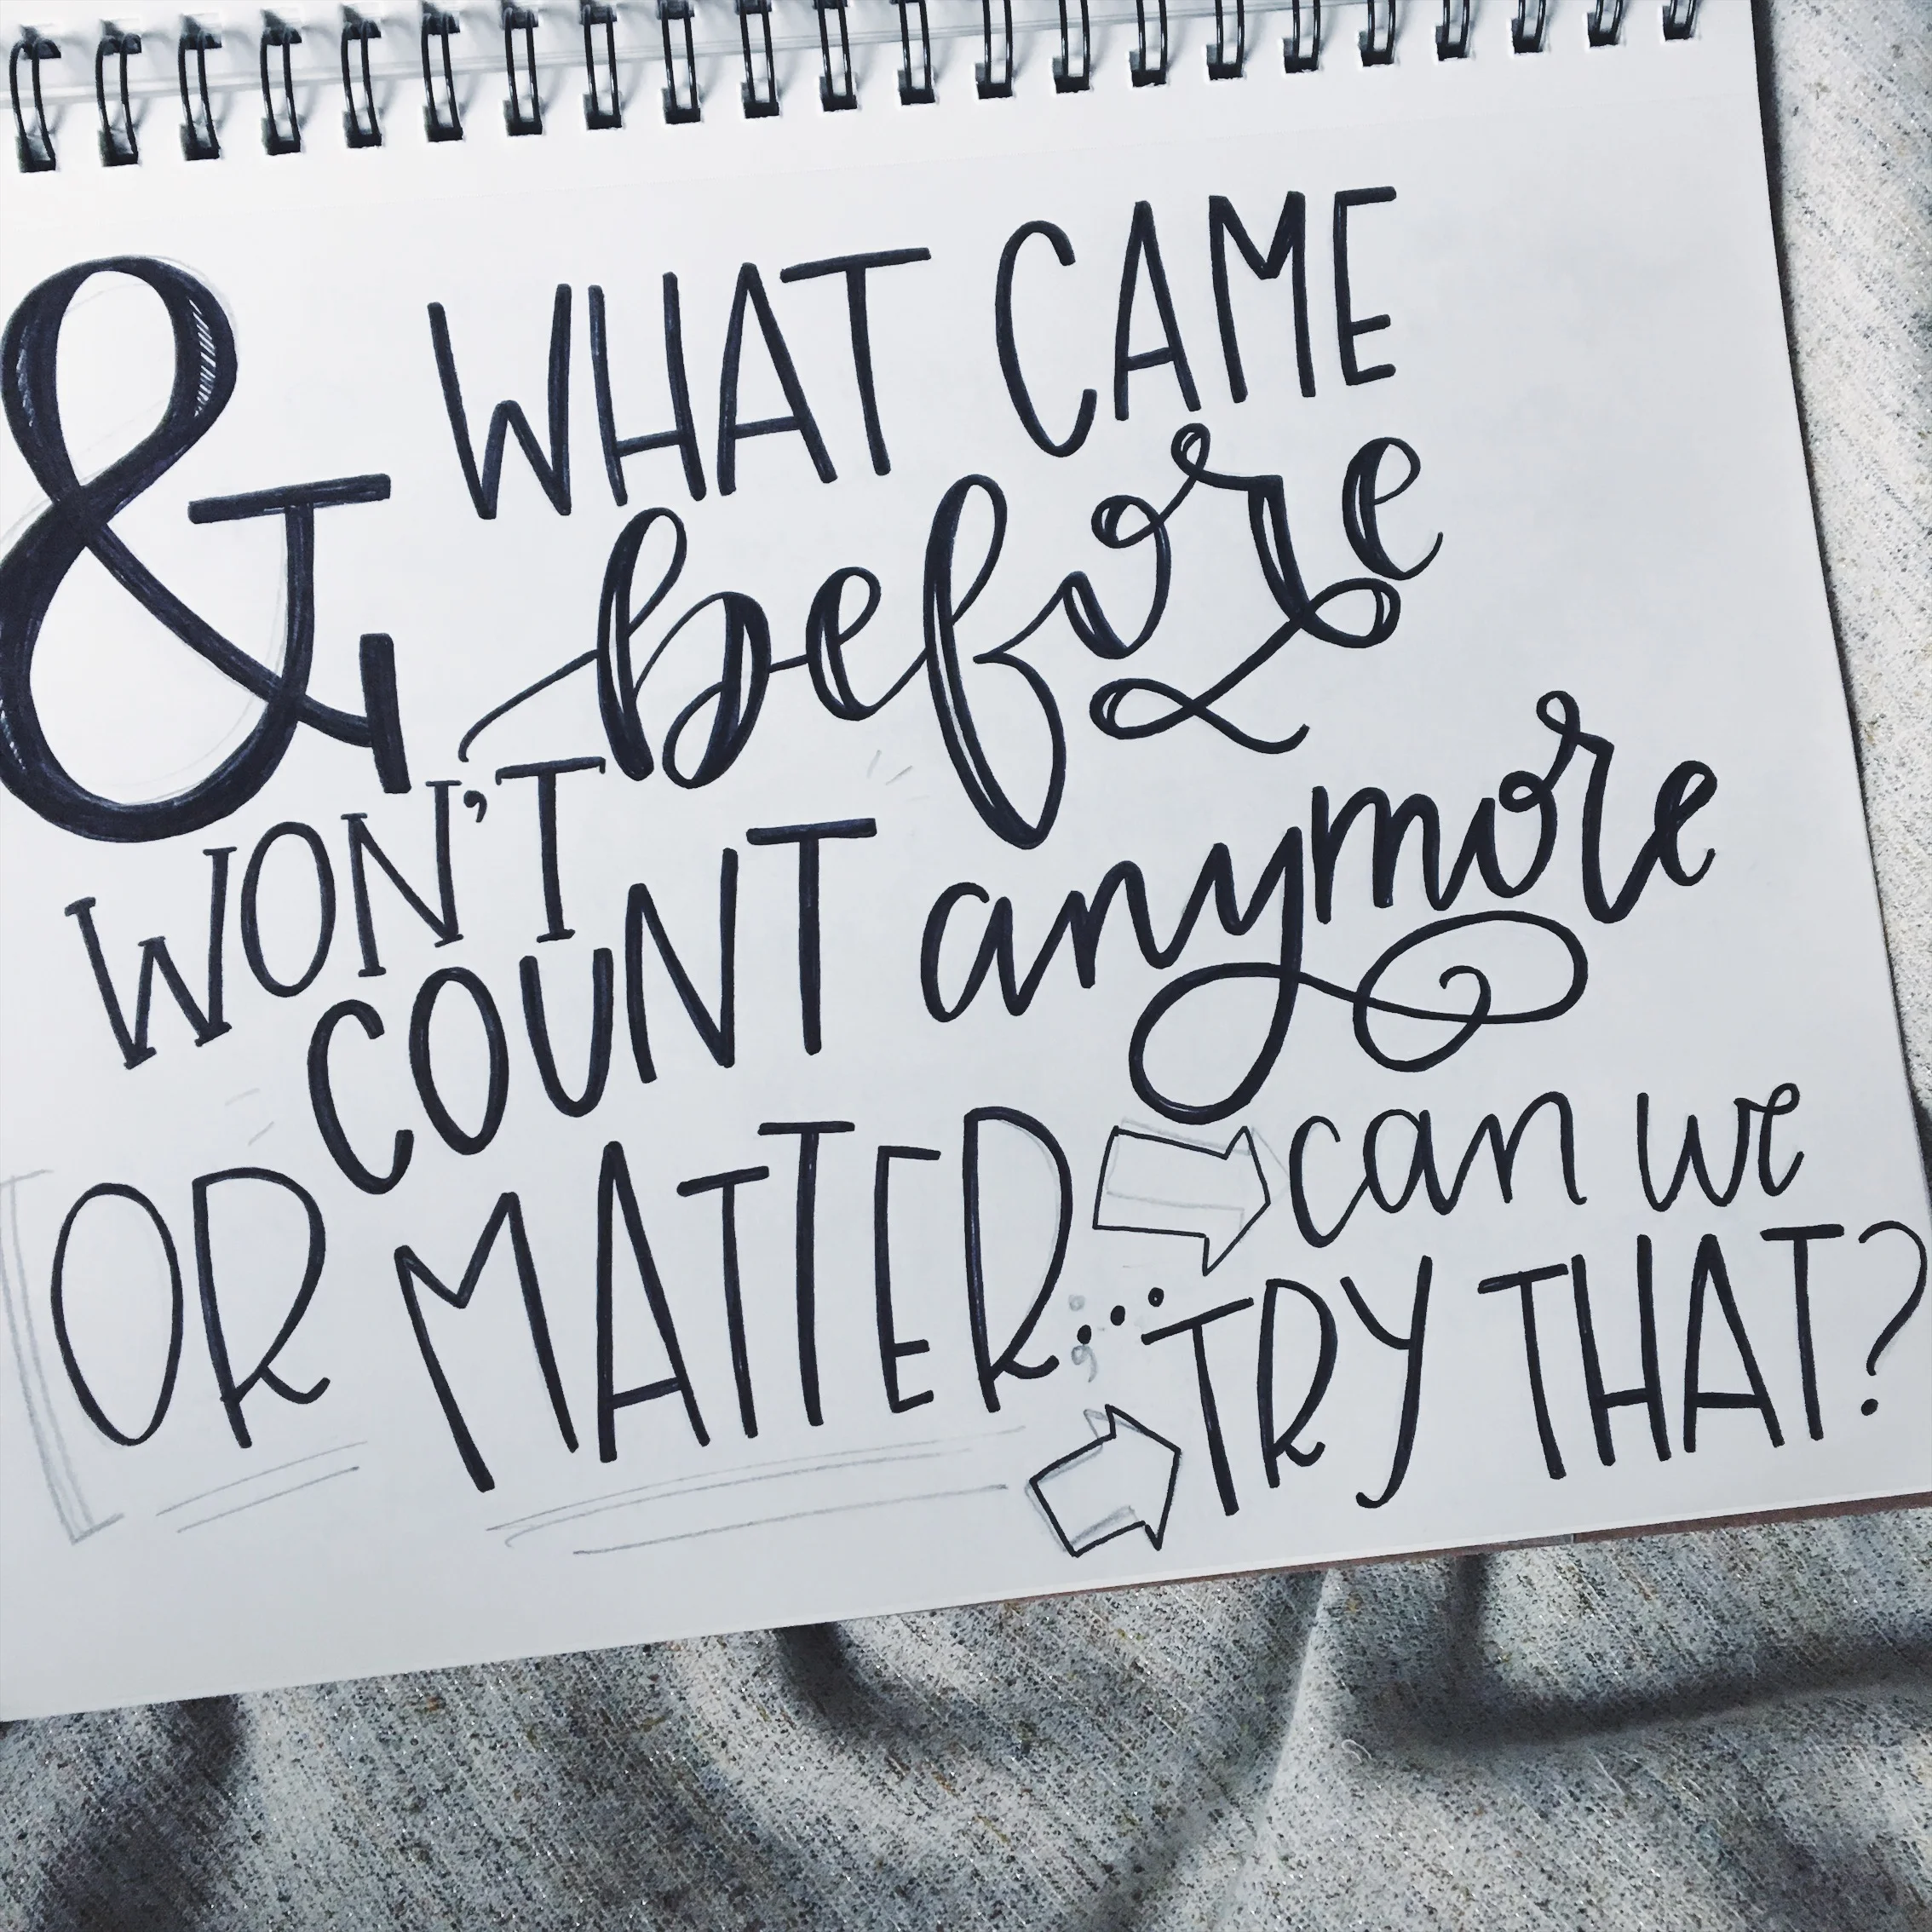 & WHAT CAME
before
WON'T
COUNT anymore
OR MATTER... can we
TRY THAT?